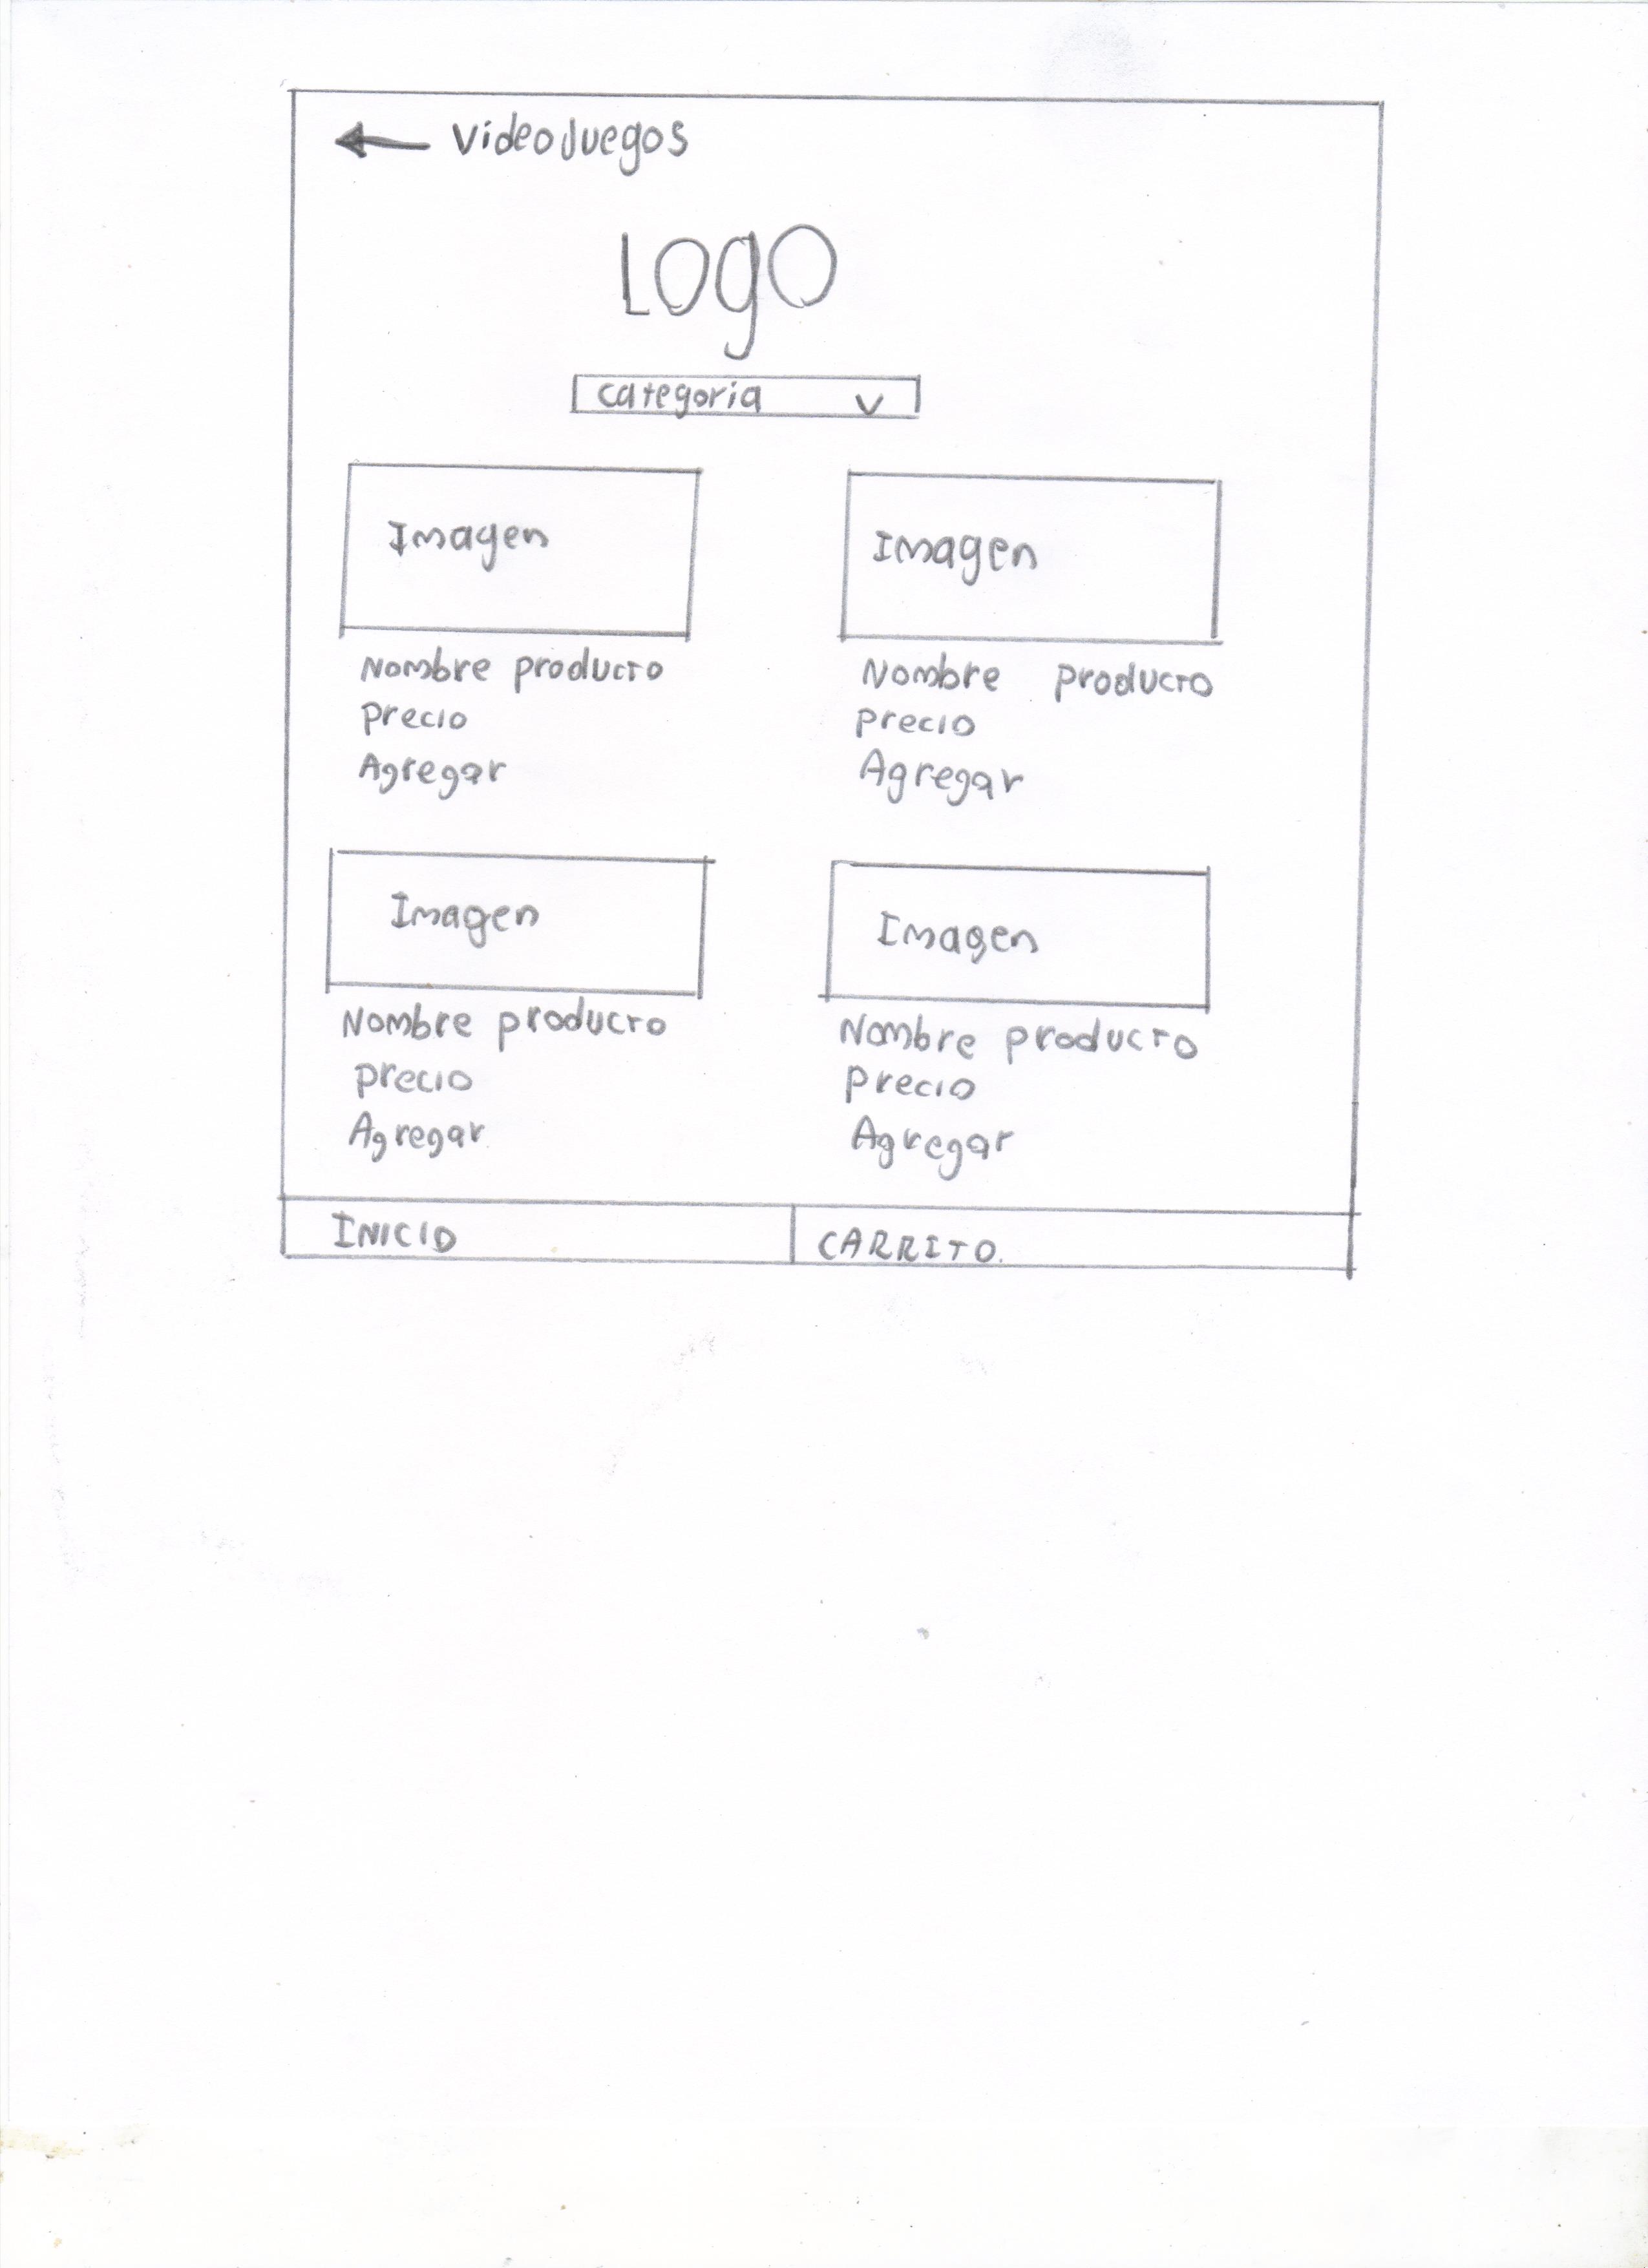 VideoJuegos
Logo
categoria
Imagen
Imagen
Nombre producto
precio
Agregar
Nombre producto
precio
Agregar
Imagen
Imagen
Nombre producto
precio
Agregar
Nombre producto
precio
Agregar
INICIO
CARRITO.